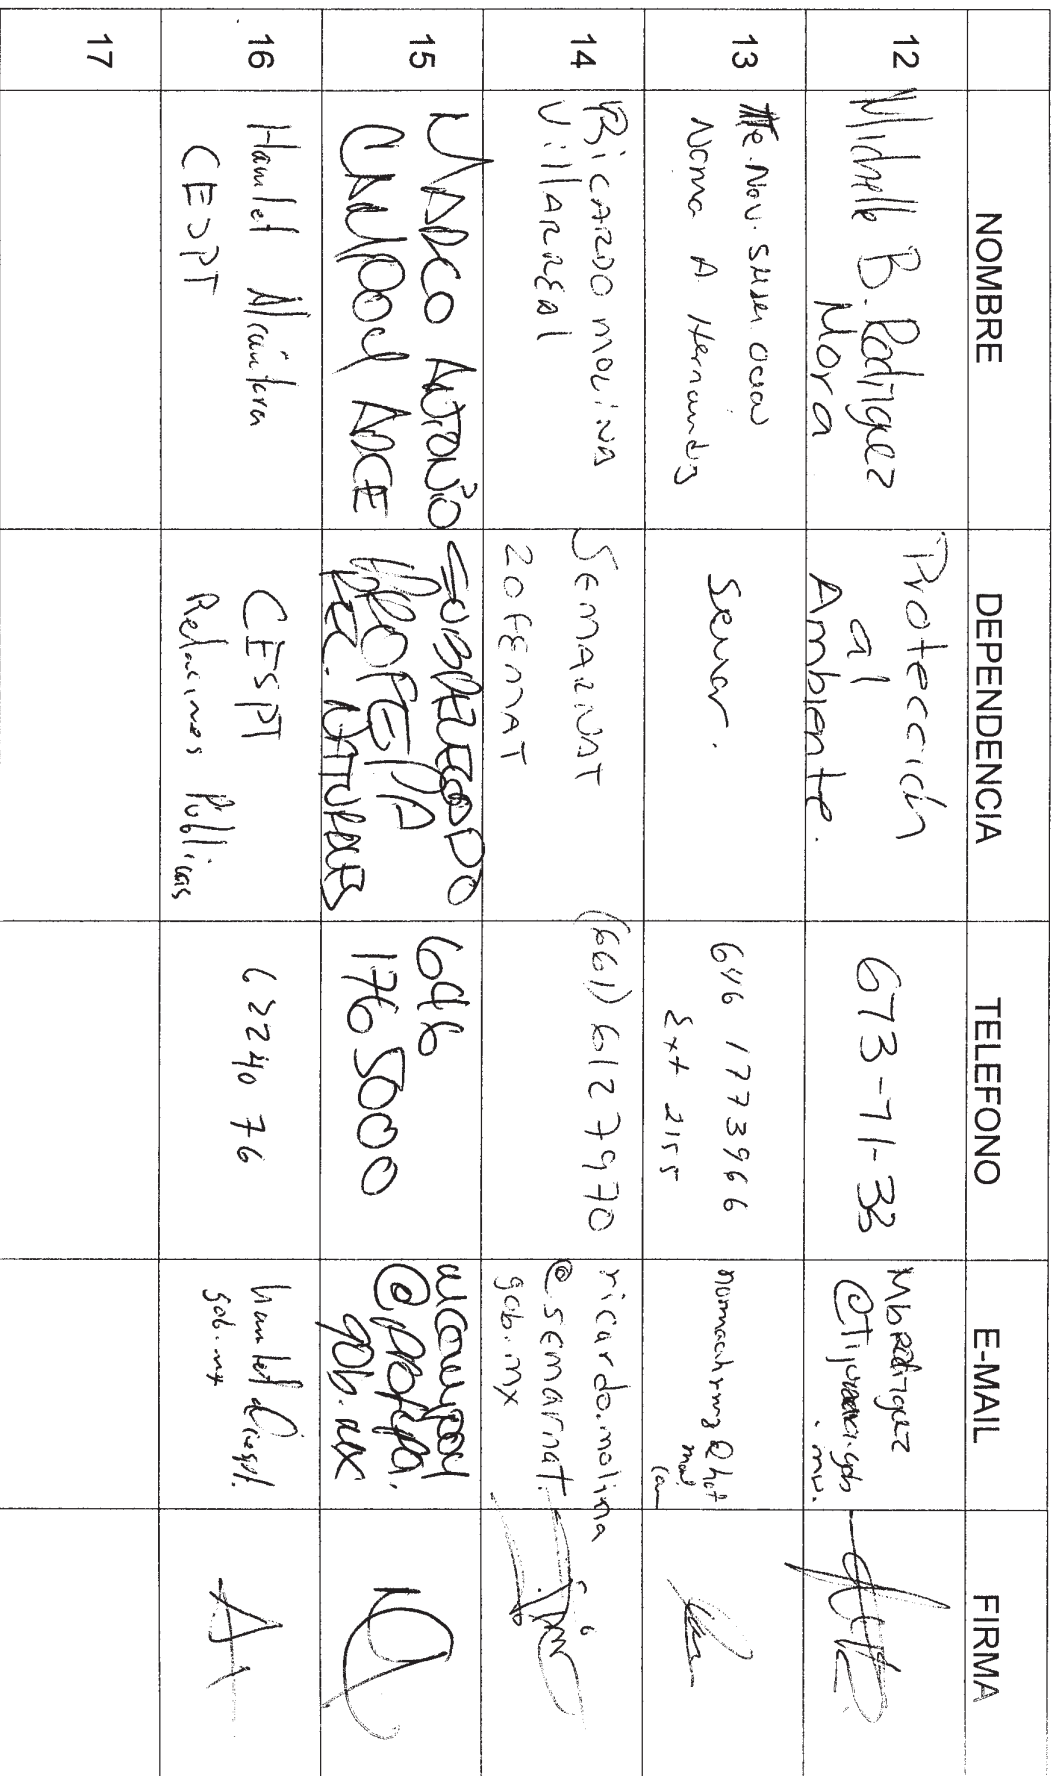 NOMBRE DEPENDENCIA TELEFONO E-MAIL FIRMA
12
Michelle B. Rodriguez
Mora
Protección
al
Ambiente.
673-71-33
Mbrodriguez
13
Nav.
Norma A Hernandez
Semar.
646 1773966
Ext 2155
14
RICARDO MOLINA
VillARREAl
SEMARNAT
ZOFEMAT
(661) 6127970
ricardo.molina
@semarnat.
gob.mx
15
MARCO ANTONIO
CAMPOY ARCE
SUBDELEGADO
PROFEPA
REC. NATURALES
646
1765000
mcampoy
@profepa.
gob.mx
16
Hamlet Alcántara
CESPT
CESPT
Relaciones Públicas
6224076
gob.mx
17